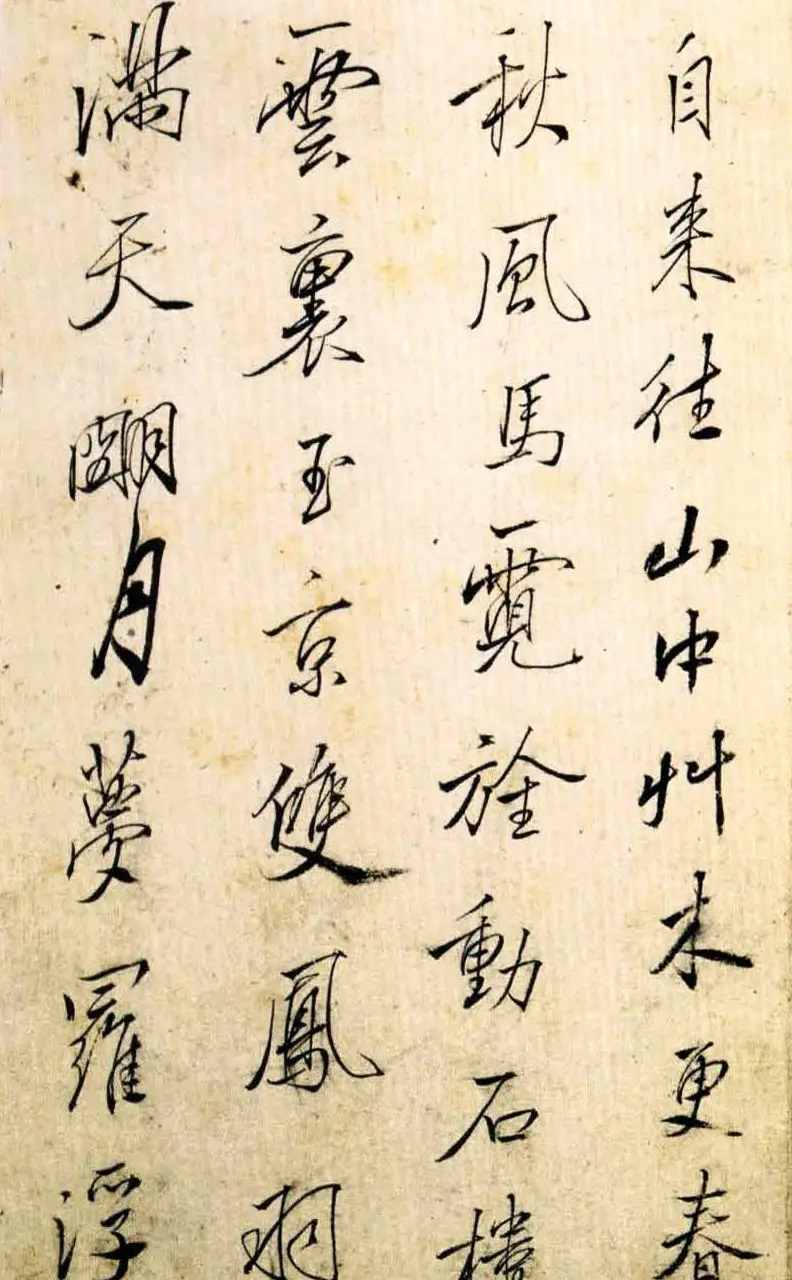 自来往山中艸木更春
秋風馬霓旌動石樓
雲裏玉京雙鳳羽
滿天明月夢羅浮